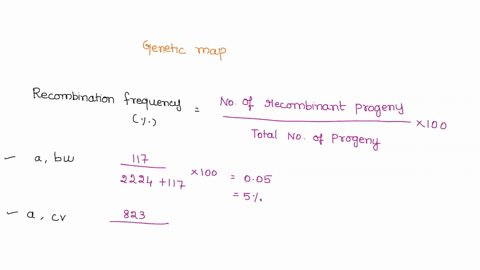 Genetic map
Recombination frequency (%) = No. of recombinant progeny / Total No. of Progeny ×100
a, bw 117 / 2224 + 117 ×100 = 0.05
= 5%
a, cv 823